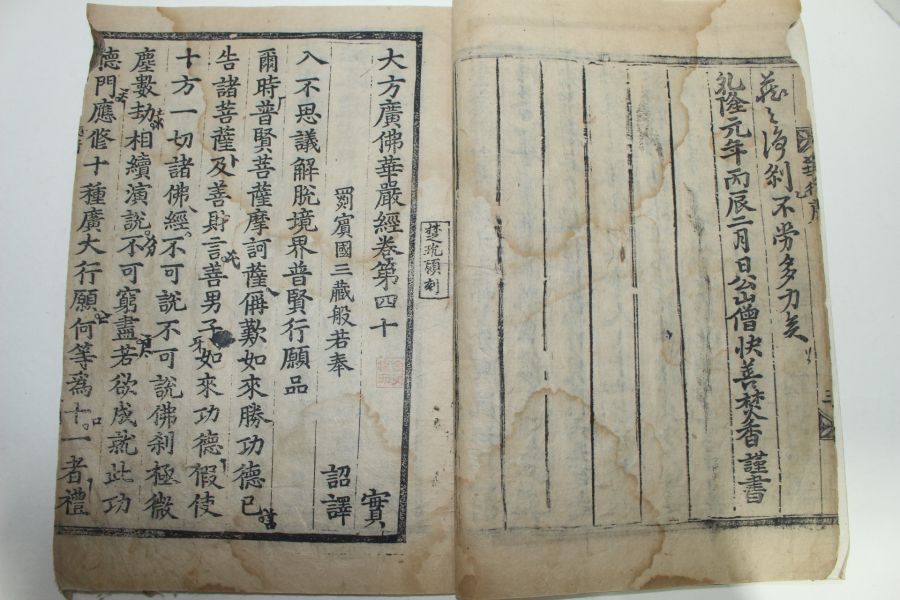 莊之海刹不劳多力矣
乹隆元年丙辰二月日公山僧快善焚香謹書
梵疏頭刻
大方廣佛華嚴經卷第四十
實
罽賓國三藏般若奉　詔譯
入不思議解脫境界普賢行願品
爾時普賢菩薩摩訶薩稱歎如來勝功德已
告諸菩薩及善財言善男子如來功德假使
十方一切諸佛經不可說不可說佛刹極微
塵數劫相續演說不可窮盡若欲成就此功
德門應修十種廣大行願何等爲十一者禮